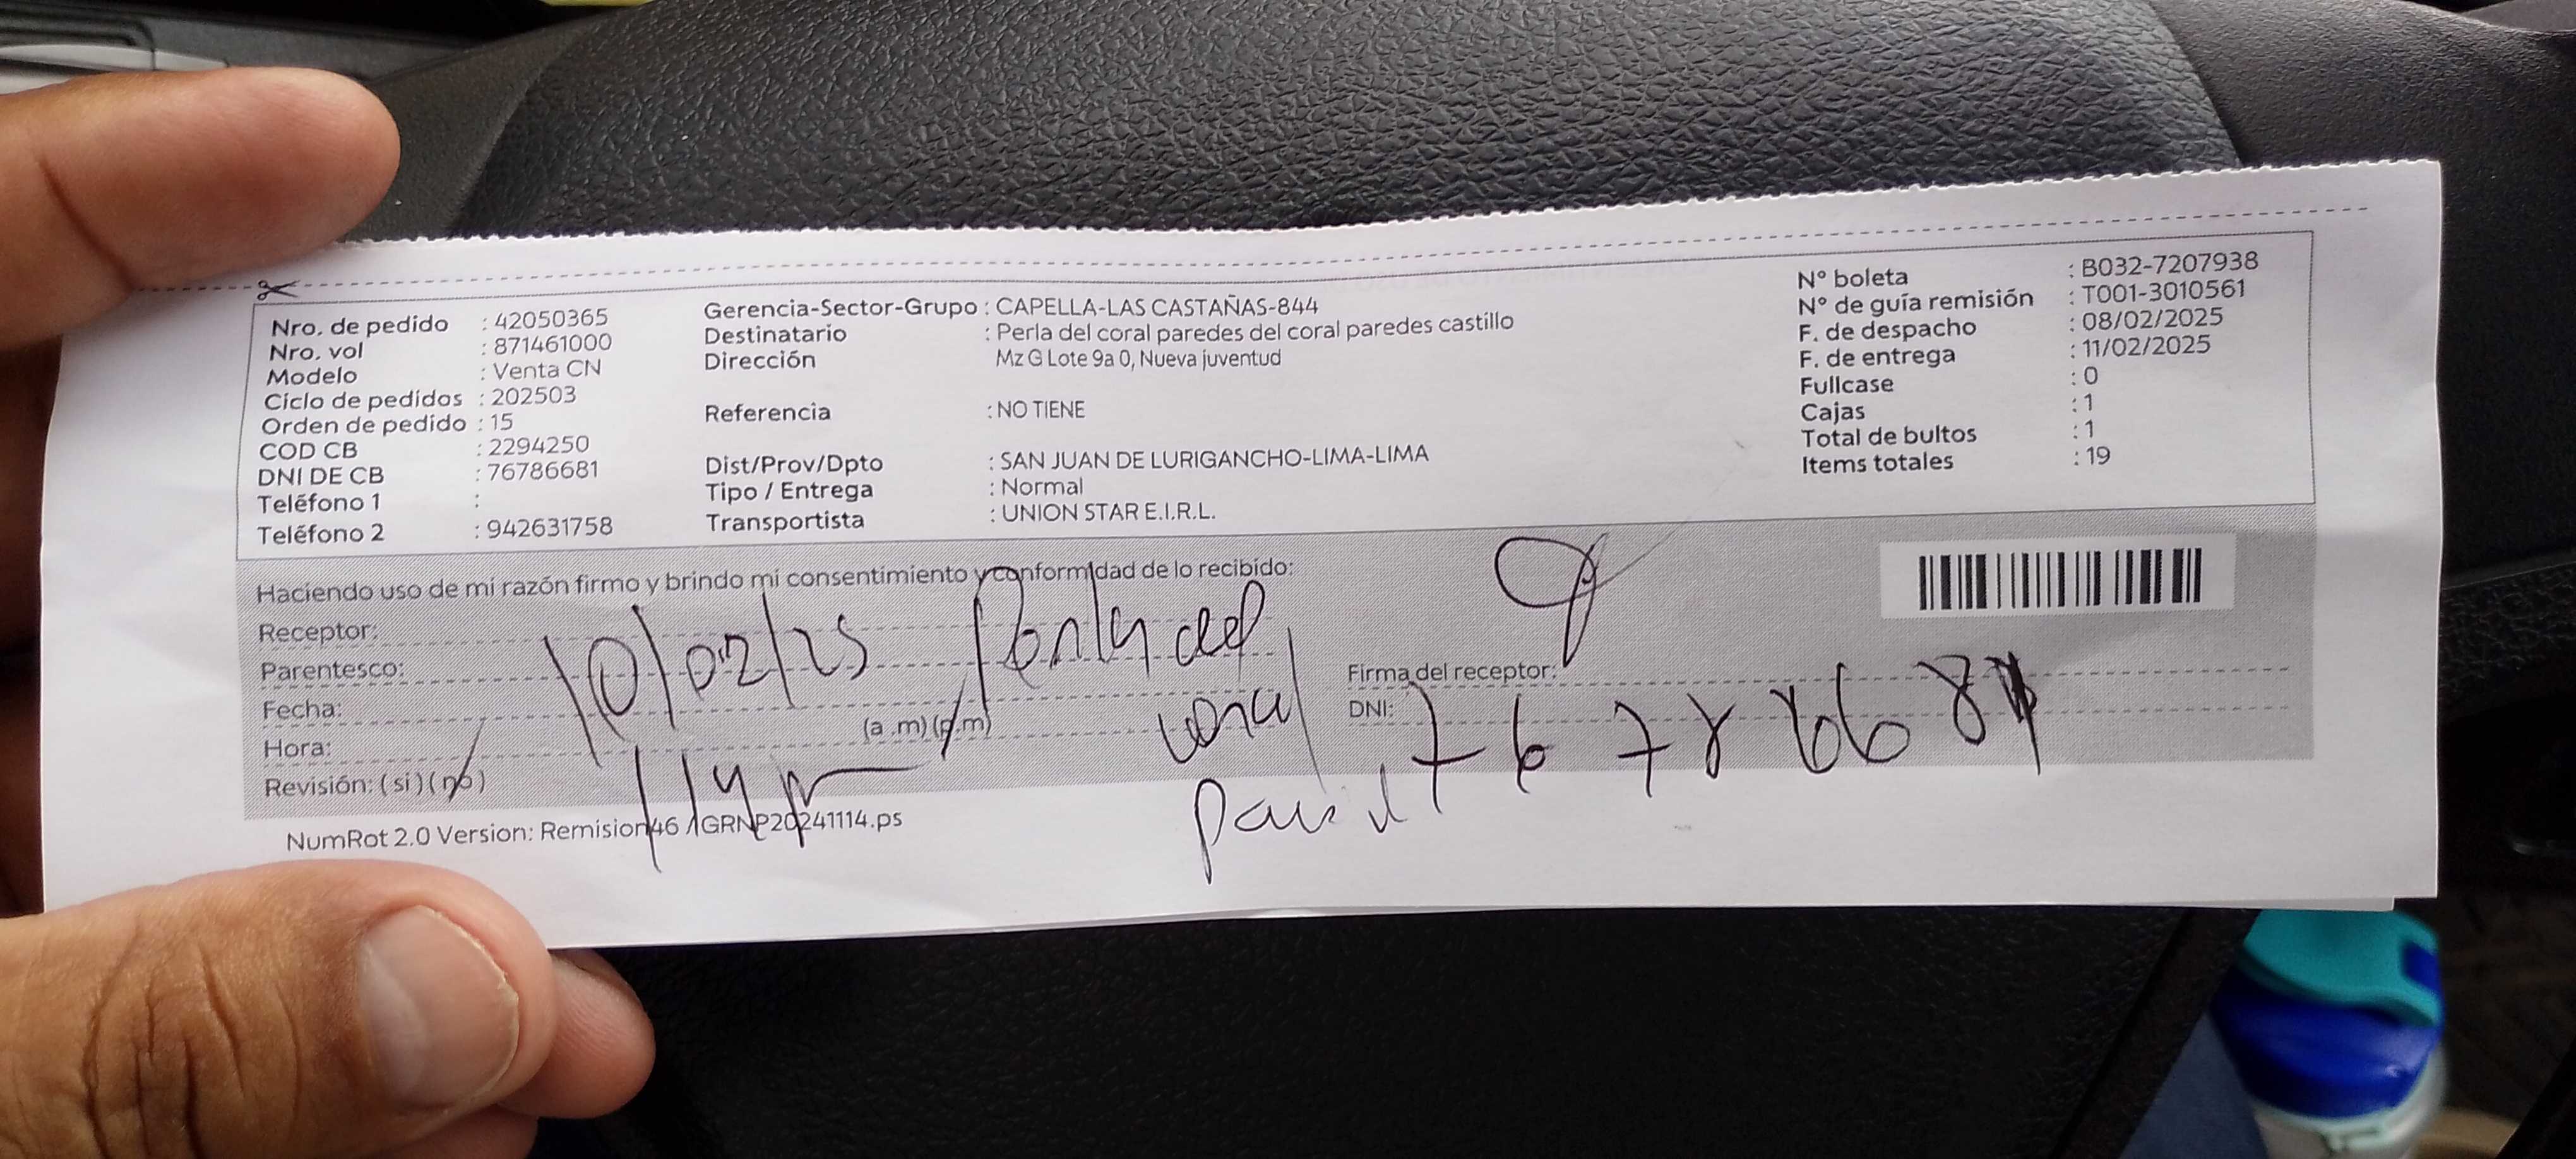 Nro. de pedido : 42050365
Nro. vol : 871461000
Modelo : Venta CN
Ciclo de pedidos : 202503
Orden de pedido : 15
COD CB : 2294250
DNI DE CB : 76786681
Teléfono 1 :
Teléfono 2 : 942631758
Gerencia-Sector-Grupo : CAPELLA-LAS CASTAÑAS-844
Destinatario : Perla del coral paredes del coral paredes castillo
Dirección Mz G Lote 9a 0, Nueva juventud
Referencia : NO TIENE
Dist/Prov/Dpto : SAN JUAN DE LURIGANCHO-LIMA-LIMA
Tipo / Entrega : Normal
Transportista : UNION STAR E.I.R.L.
N° boleta : B032-7207938
N° de guía remisión : T001-3010561
F. de despacho : 08/02/2025
F. de entrega : 11/02/2025
Fullcase : 0
Cajas : 1
Total de bultos : 1
Items totales : 19
Haciendo uso de mi razón firmo y brindo mi consentimiento y conformidad de lo recibido:
Receptor:
Parentesco:
Fecha: 10/02/25
Hora: (a.m) (p.m)
Revisión: (si) (no)
Perla del
coral
Firma del receptor:
DNI:
NumRot 2.0 Version: Remision46 /GRNP20241114.ps